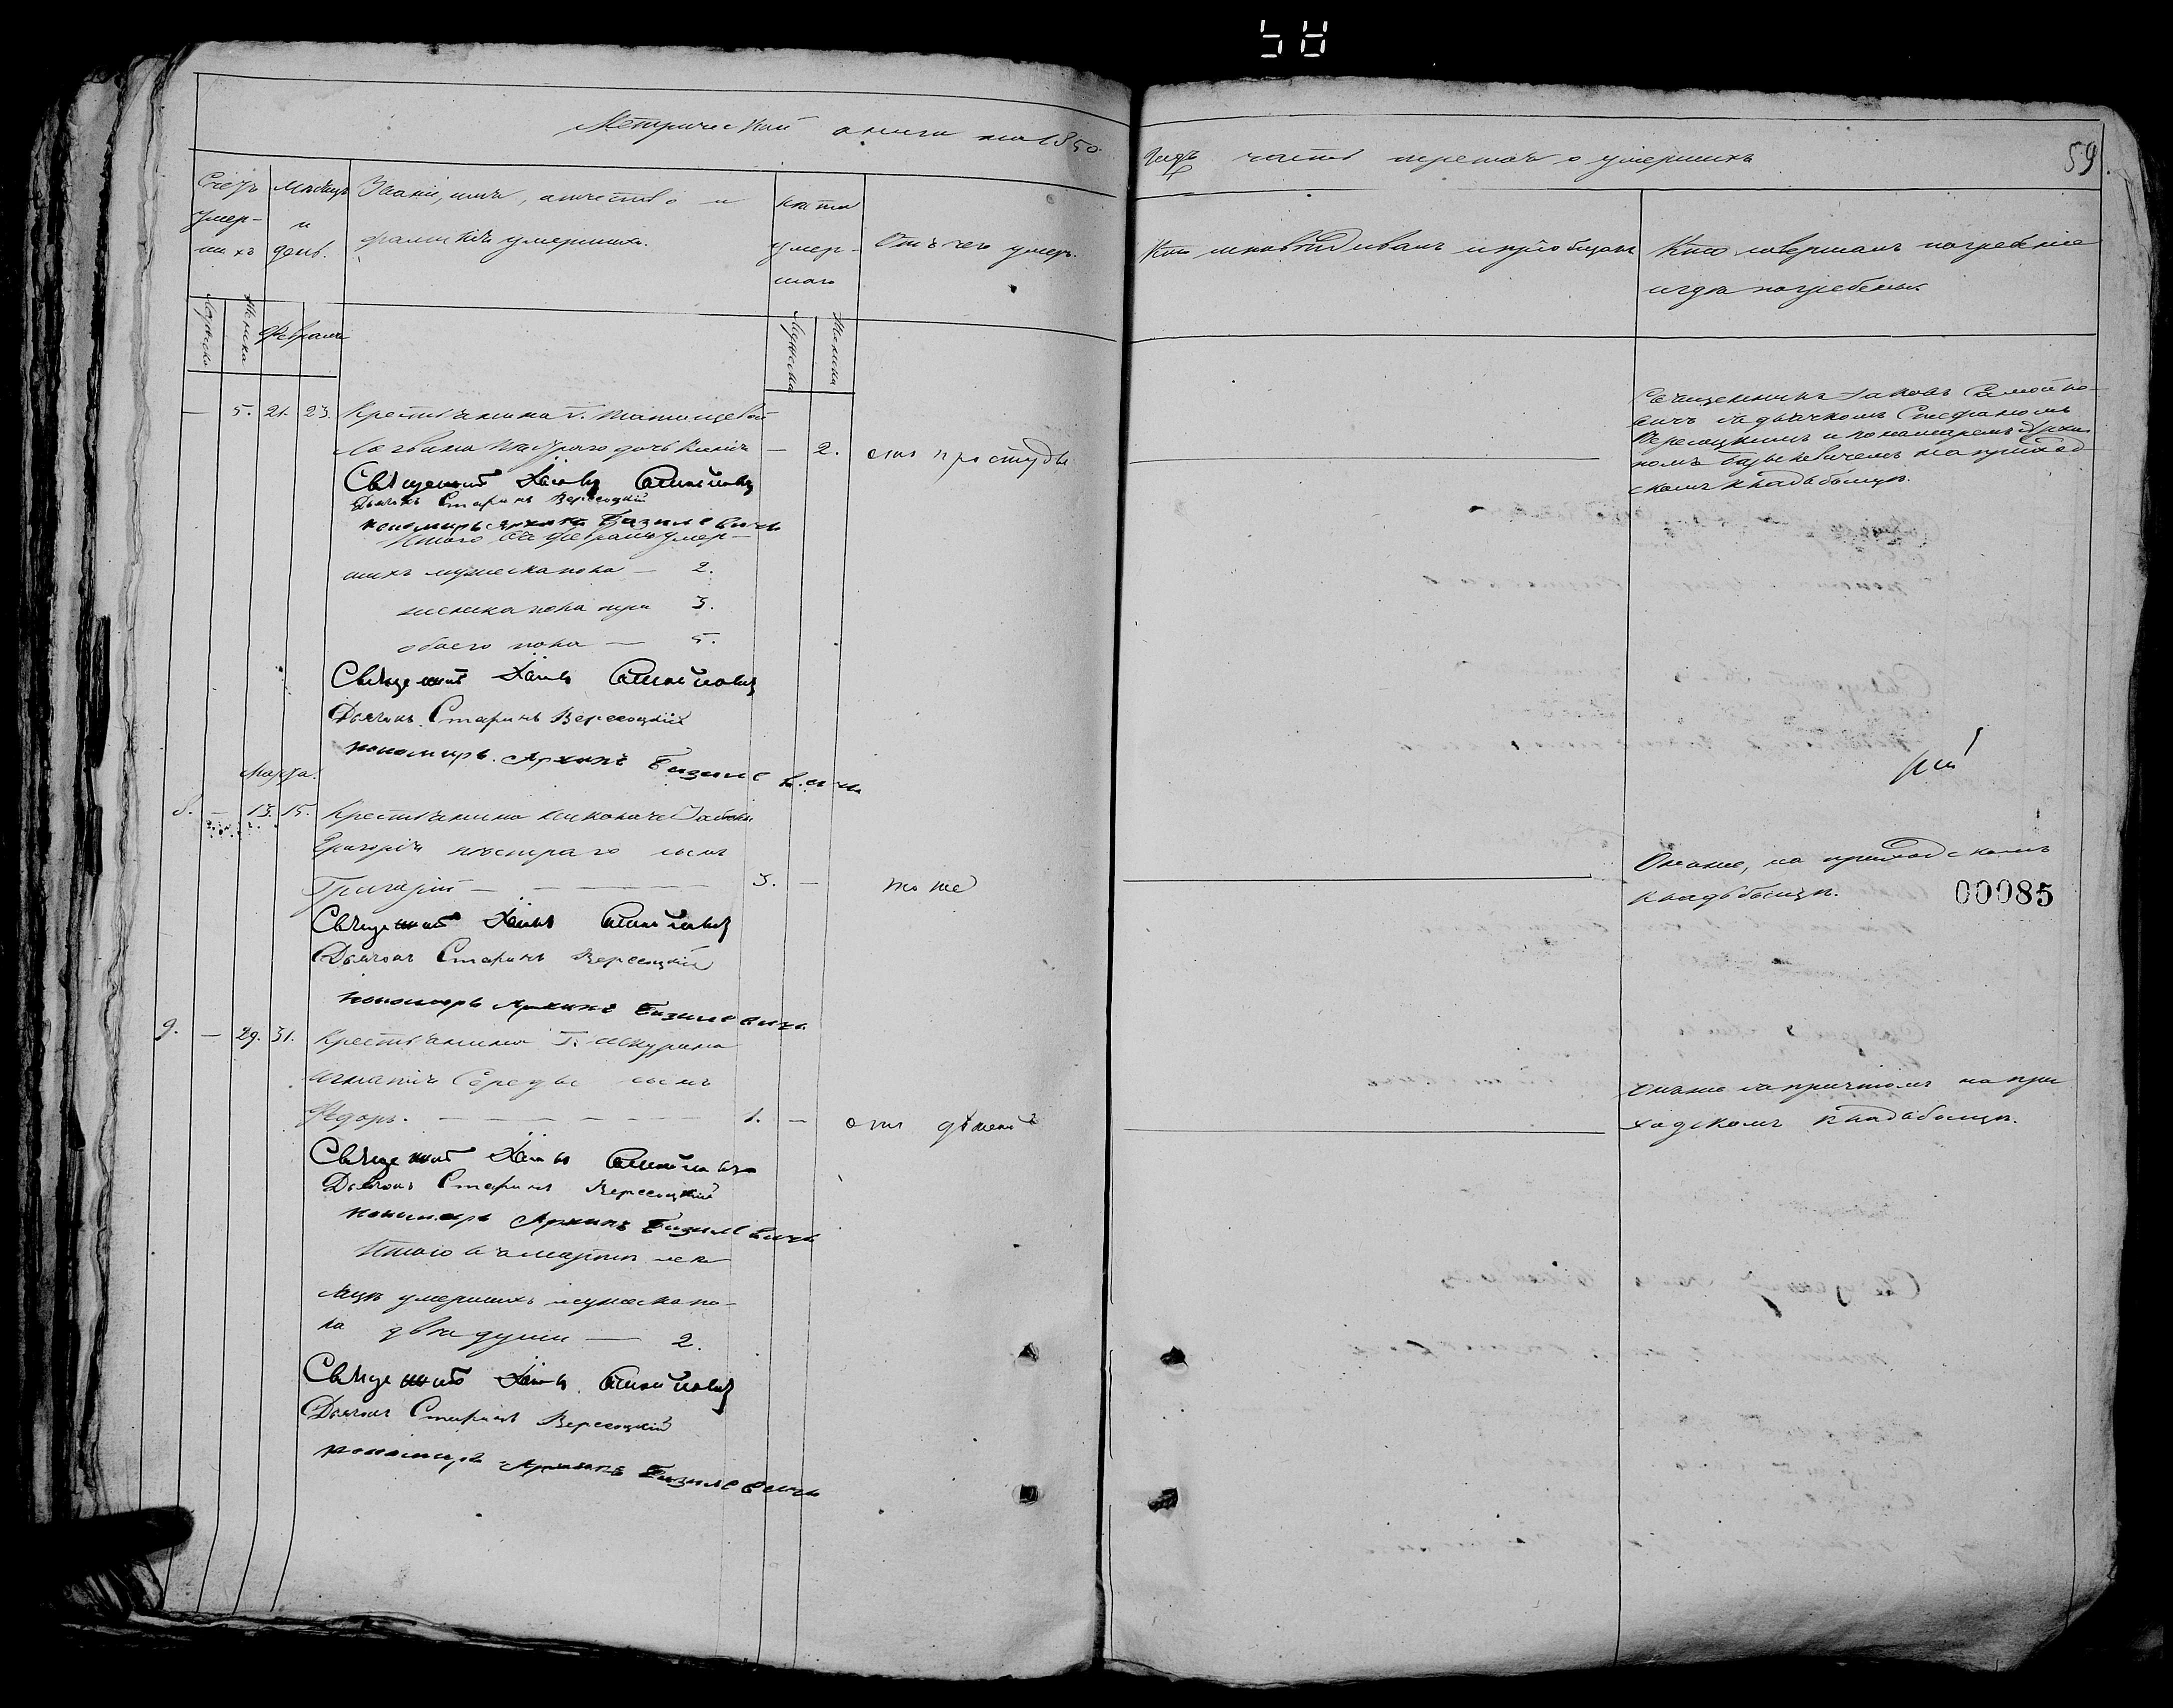 58
Метрической книги на 1850.
Годъ часть третья о умершихъ
59
Счетъ умер-шихъ
Мѣсяцъ и день.
Званіе, имя, отчество и
фамилія умершихъ.
Лѣта умер-шаго
Отъ чего умеръ.
Кто исповѣдывалъ и пріобщалъ
Кто совершалъ погребеніе
и гдѣ погребены.
Мужеска
Женска
Февраля
Мужеска
Женска
— 5. 21. 23. Крестьянина
дочь
— 2. отъ простуды
Священникъ Іаковъ Самойло-
вичъ съ дьячкомъ Стефаномъ
Вересоцкимъ и пономаремъ Архи
помъ Базилевичемъ на приход
скомъ кладбищѣ.
Священникъ Іаковъ Самойловичъ
Дьячокъ Стефанъ Вересоцкій
пономарь Архипъ Базилевичь
Итого въ февралѣ умер-
шихъ мужеска пола — 2.
женска пола три 3.
обоего пола — 5.
Священникъ Іаковъ Самойловичъ
Дьячокъ Стефанъ Вересоцкій
пономарь Архипъ Базилевичь
Марта.
8. — 13. 15. Крестьянина
Григорія сынъ
Григорій — 3. — тоже
Оные, на приходскомъ
кладбищѣ.
00085
Священникъ Іаковъ Самойловичъ
Дьячокъ Стефанъ Вересоцкій
пономарь Архипъ Базилевичь
9. — 29. 31. Крестьянина Г. Шкурина
Игнатія Середы сынъ
Ѳедоръ. — 1. —
Оные съ причтомъ на при
ходскомъ кладбищѣ.
Священникъ Іаковъ Самойловичъ
Дьячокъ Стефанъ Вересоцкій
пономарь Архипъ Базилевичь
Итого въ мартѣ мѣ
сяцѣ умершихъ мужеска по-
ла двѣ души — 2.
Священникъ Іаковъ Самойловичъ
Дьячокъ Стефанъ Вересоцкій
пономарь Архипъ Базилевичь